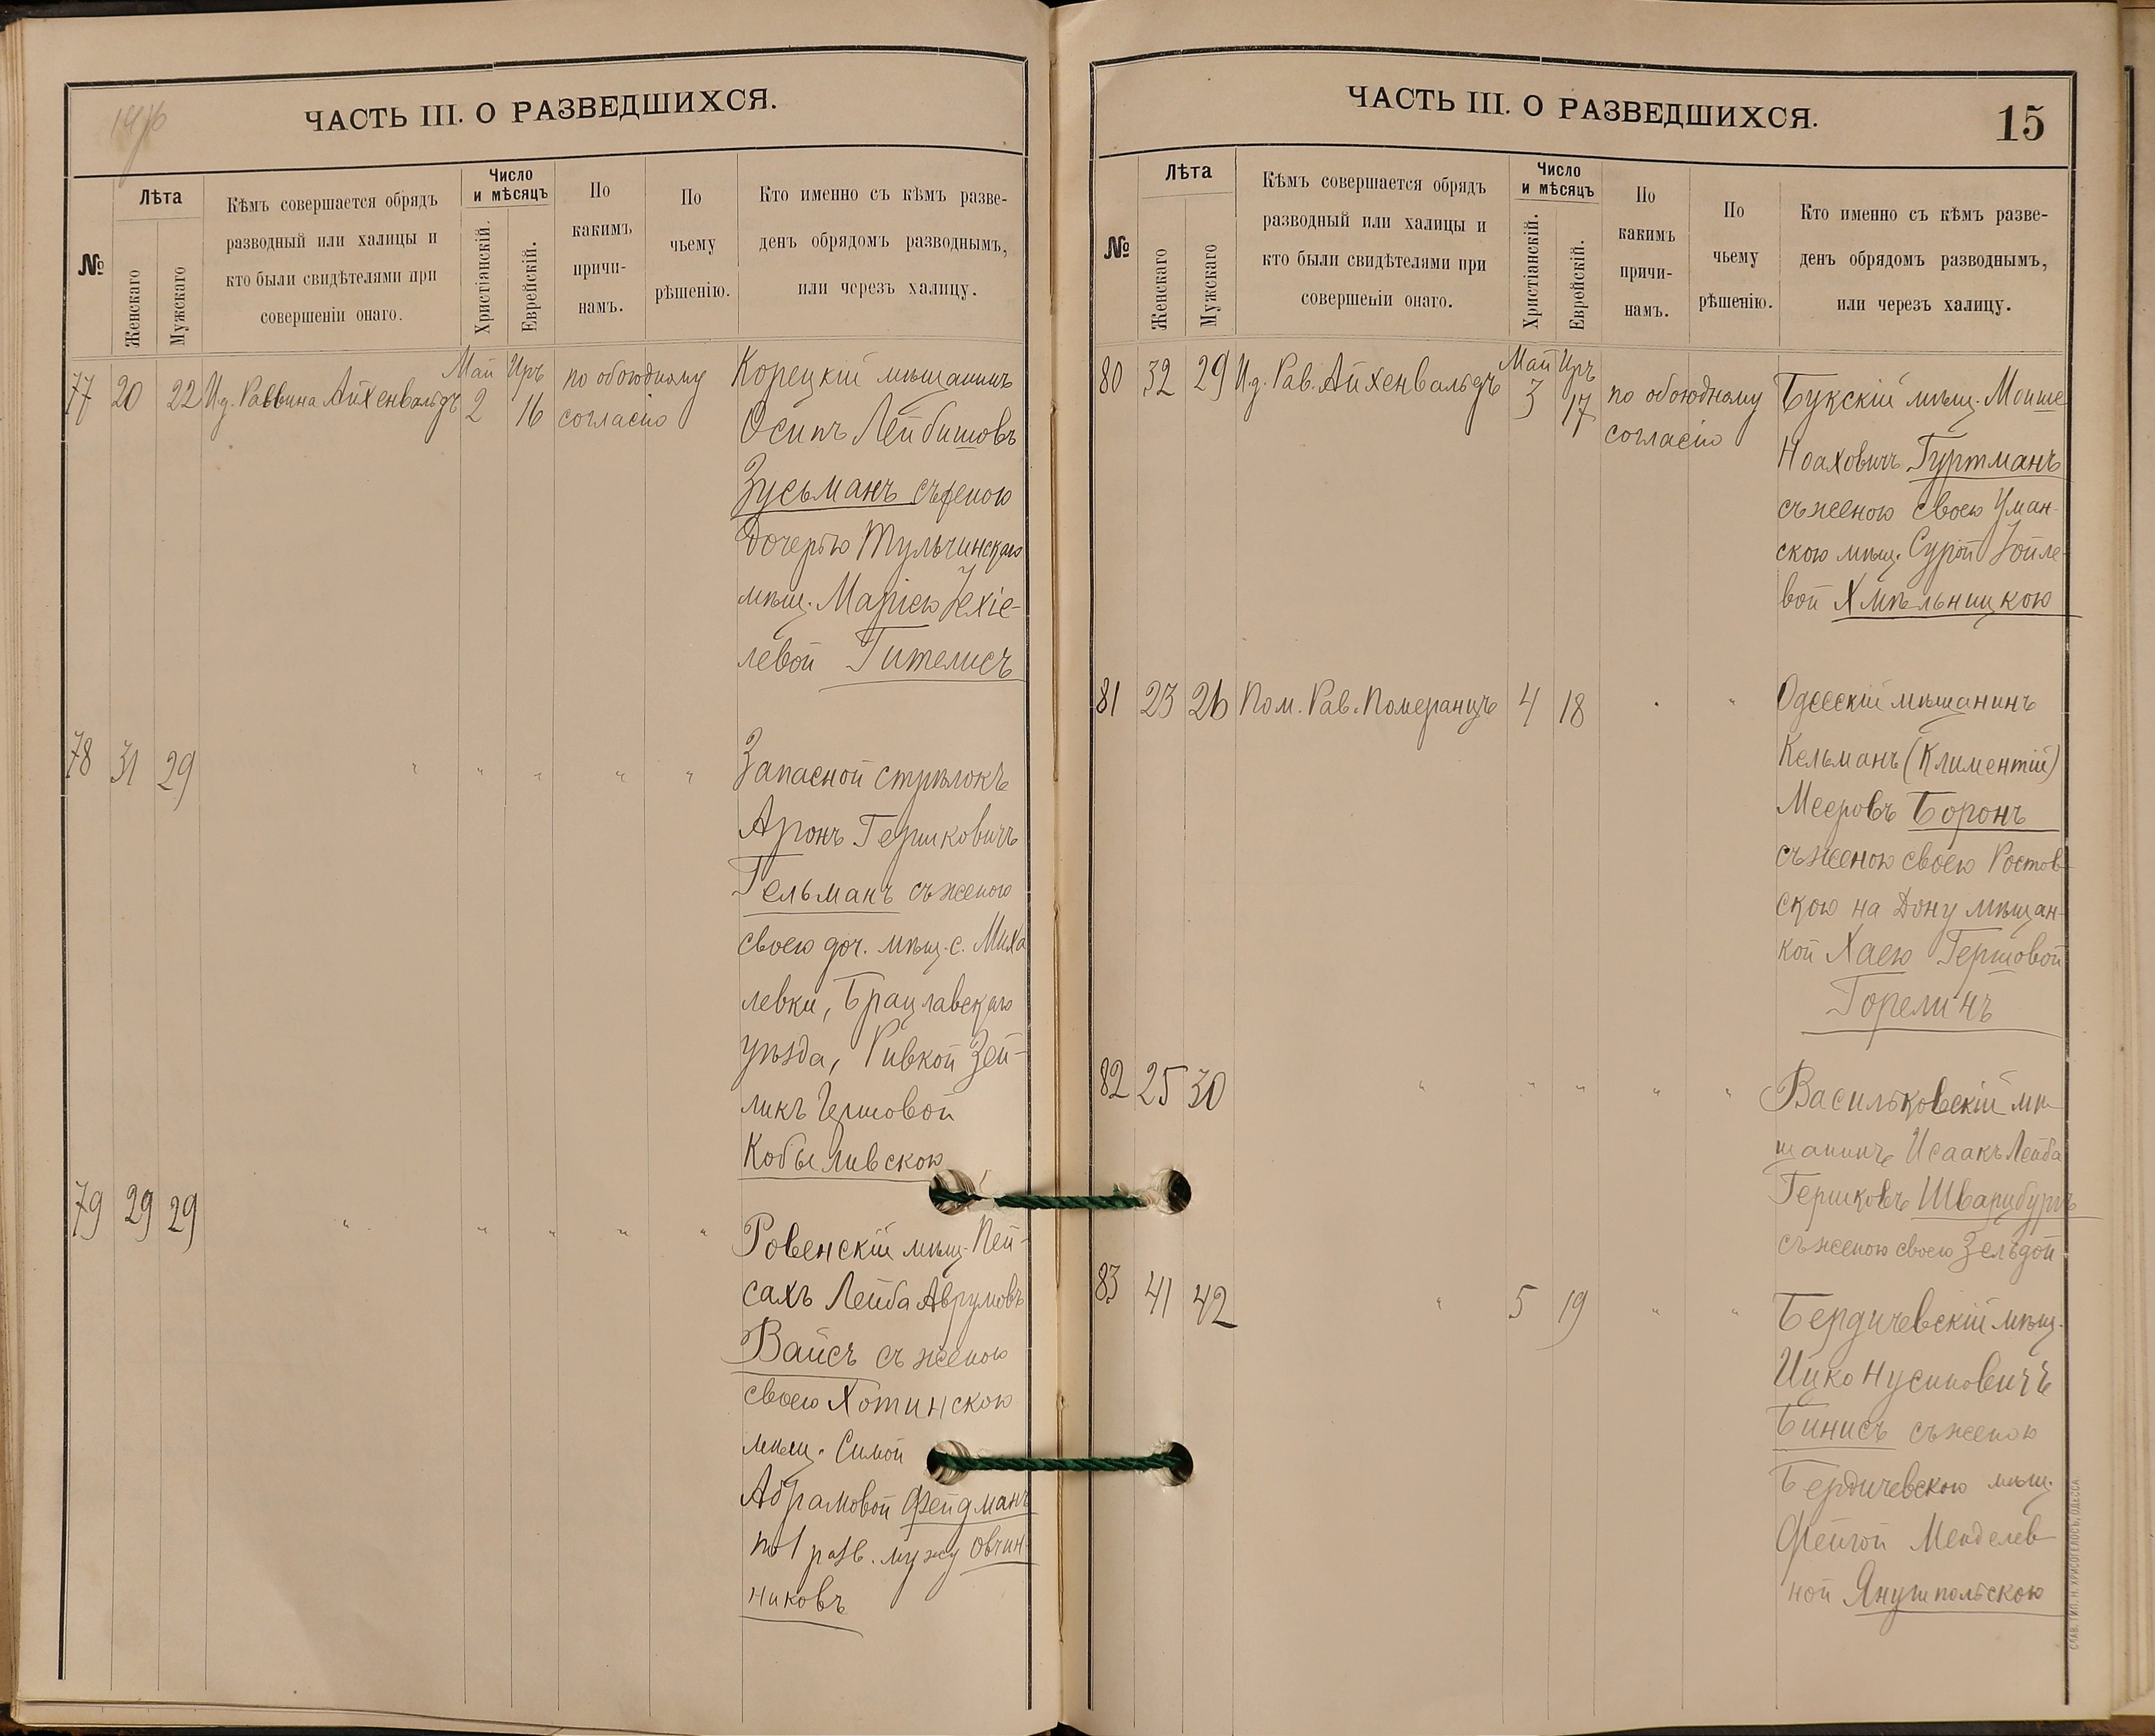 ЧАСТЬ III. О РАЗВЕДШИХСЯ.
№
Лѣта
Женскаго
Мужскаго
Кѣмъ совершается обрядъ
разводный или халицы и
кто были свидѣтелями при
совершеніи онаго.
Число
и мѣсяцъ
Христіанскій.
Еврейскій.
По
какимъ
причи-
намъ.
По
чьему
рѣшенію.
Кто именно съ кѣмъ разве-
денъ обрядомъ разводнымъ,
или черезъ халицу.
77 20 22 И.д. Раввина Айхенвальдъ Май 2 Иръ 16 по обоюдному
согласію
Корецкій мѣщанинъ
Осипъ Лейбишовъ
Зусьманъ съ женою
дочерью Тульчинскаго
мѣщ. Маріею Іехіе-
левой Гителисъ
78 31 29 " " " " "
Запасной стрѣлокъ
Аронъ Гершковичъ
Гельманъ съ женою
своею доч. мѣщ. с. Миха
левки, Брацлавскаго
уѣзда, Ривкой Зей-
ликъ Гершовой
Кобыливскою
79 29 29 " " " " "
Ровенскій мѣщ. Пей-
сахъ Лейба Аврумовъ
Вайсъ съ женою
своею Хотинскою
мѣщ. Симой
Абрамовой Фейдманъ
по 1 разв. мужу Овчин-
никовъ
ЧАСТЬ III. О РАЗВЕДШИХСЯ.
15
№
Лѣта
Женскаго
Мужскаго
Кѣмъ совершается обрядъ
разводный или халицы и
кто были свидѣтелями при
совершеніи онаго.
Число
и мѣсяцъ
Христіанскій.
Еврейскій.
По
какимъ
причи-
намъ.
По
чьему
рѣшенію.
Кто именно съ кѣмъ разве-
денъ обрядомъ разводнымъ,
или черезъ халицу.
80 32 29 И.д. Рав. Айхенвальдъ Май 3 Иръ 17 по обоюдному
согласію
Букскій мѣщ. Моише
Ноаховичъ Гуртманъ
съ женою своею Уман-
скою мѣщ. Сурой Іойле-
вой Хмѣльницкою
81 23 26 Пом. Рав. Померанцъ 4 18 " "
Одесскій мѣщанинъ
Кельманъ (Климентій)
Мееровъ Боронъ
съ женою своею Ростов-
скою на Дону мѣщан-
кой Хаею Гершовой
Горелинъ
82 25 30 " " " " "
Васильковскій мѣ-
щанинъ Исаакъ Лейба
Гершковъ Шварцбургъ
съ женою своею Зельдой
83 41 42 " 5 19 " "
Бердичевскій мѣщ.
Ицко Нусиновичъ
Бинисъ съ женою
Бердичевскою мѣщ.
Фейгой Менделев-
ной Янушпольскою
СЛАВ. ТИП. Н. ХРИСОГЕЛОСЪ, ОДЕССА